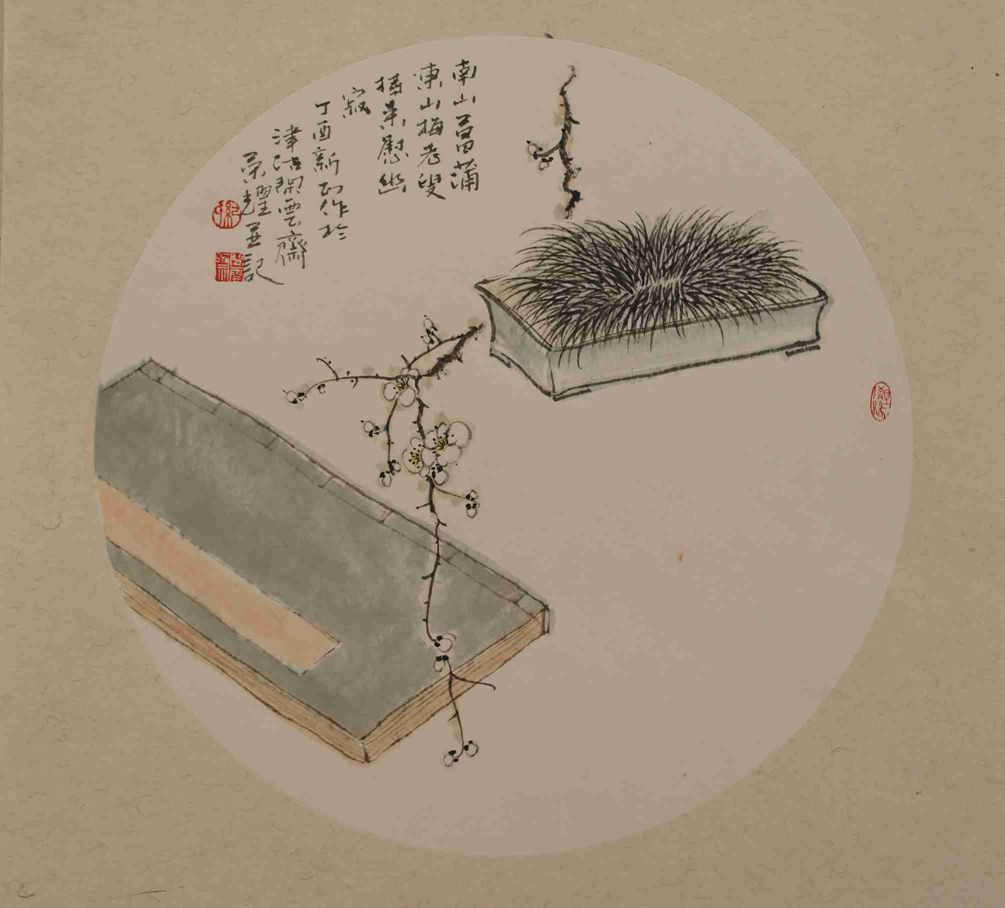 南山菖蒲
東山梅老叟
攜來慰幽
寂
丁酉新正作於
津沽閑雲齋
榮耀並記